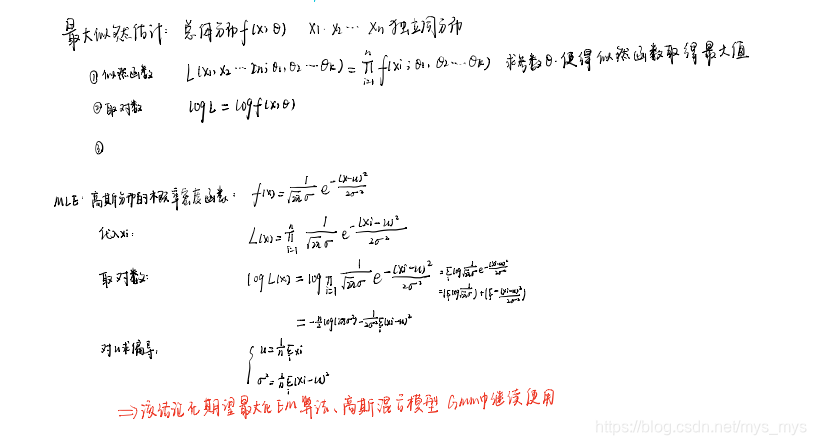 最大似然估计: 总体分布f(x,θ) X1. X2 … Xn 独立同分布
①似然函数 L(X1, X2 … Xn; θ1, θ2 … θk) = ∏_{i=1}^{n} f(xi; θ1, θ2 … θk) 求参数θ.使得似然函数取得最大值
②取对数 log L = log f(x,θ)
③
MLE: 高斯分布的概率密度函数: f(x) = \frac{1}{\sqrt{2π}σ} e^{-\frac{(x-u)^2}{2σ^2}}
代入xi: L(x) = ∏_{i=1}^{n} \frac{1}{\sqrt{2π}σ} e^{-\frac{(xi-u)^2}{2σ^2}}
取对数: log L(x) = log ∏_{i=1}^{n} \frac{1}{\sqrt{2π}σ} e^{-\frac{(xi-u)^2}{2σ^2}} = Σ_i log \frac{1}{\sqrt{2π}σ} e^{-\frac{(xi-u)^2}{2σ^2}}
= (Σ_i log \frac{1}{\sqrt{2π}σ}) + (Σ_i -\frac{(xi-u)^2}{2σ^2})
= -\frac{n}{2} log(2πσ^2) - \frac{1}{2σ^2} Σ_i (xi-u)^2
对u求偏导, u = \frac{1}{n} Σ_i xi
σ^2 = \frac{1}{n} Σ_i (xi-u)^2
⇒该结论在期望最大化EM算法、高斯混合模型 GMM中继续使用
https://blog.csdn.net/mys_mys